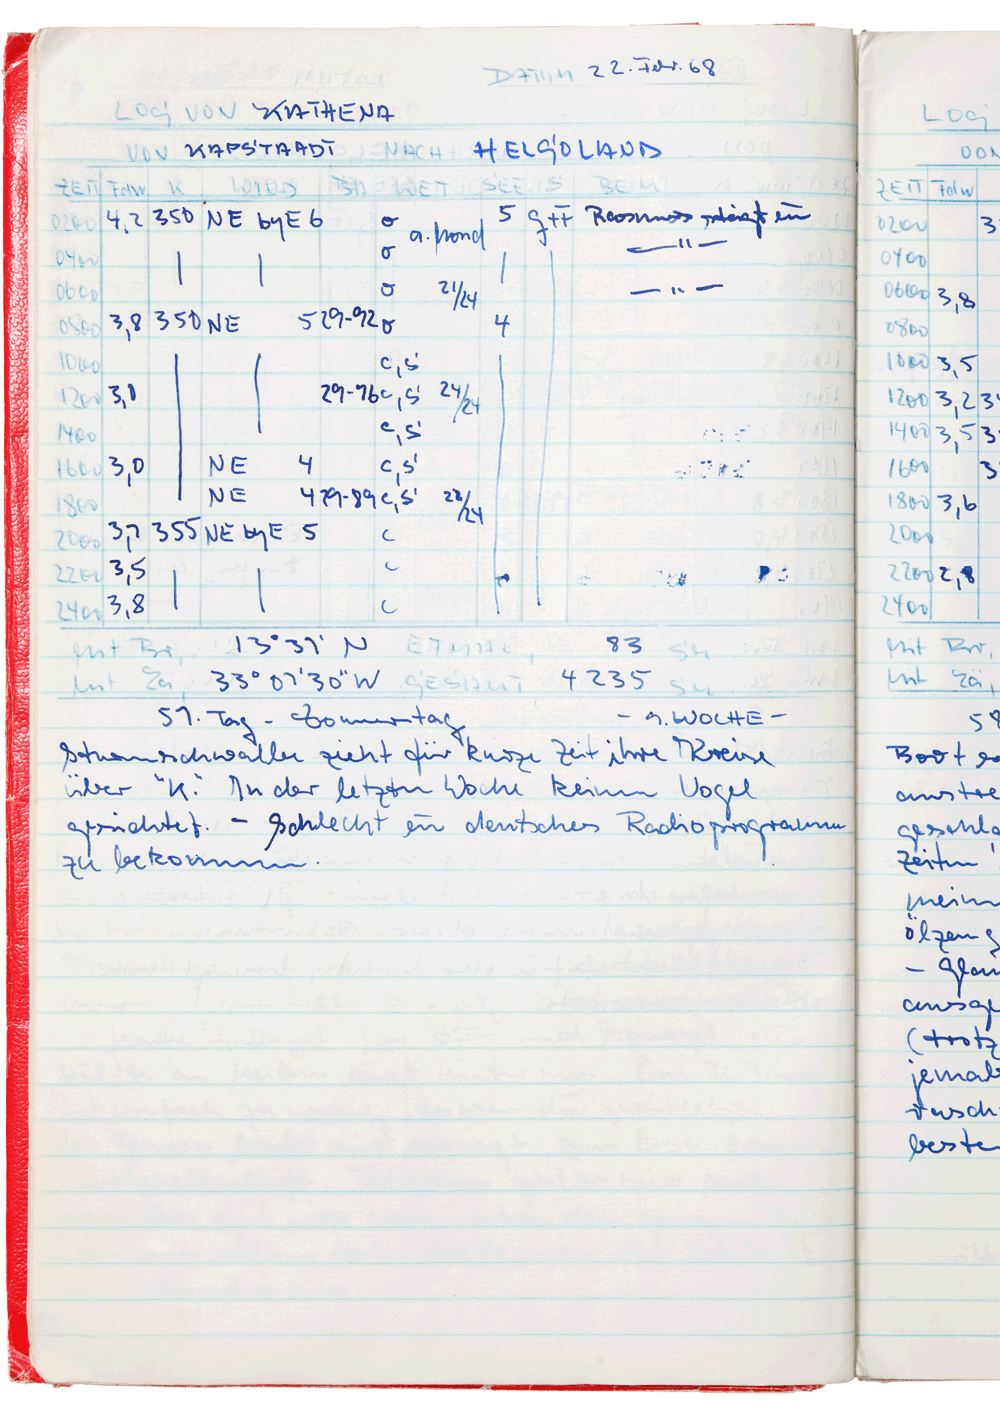 DATUM 22. Febr. 68
LOG VON KATHENA
VON KAPSTAADT NACH HELGOLAND
ZEIT Fdw K WIND BA WET SEE S BEM
0200 4,2 350 NE byE 6 o a. Mond 5 g++ Rassmus steigt ein
0400 o — " —
0600 o 21/24 — " —
0800 3,8 350 NE 5 29-92 o 4
1000 c,s
1200 3,1 29-76 c,s 24/24
1400 c,s
1600 3,0 NE 4 c,s
1800 NE 4 29-89 c,s 28/24
2000 3,7 355 NE byE 5 c
2200 3,5 c
2400 3,8 c
Mit Br, 13°37' N ETMAL, 83 sm
Mit Lä, 33°07'30"W GESAMT 4235 sm
57. Tag - Donnerstag - 9. WOCHE -
Sturmschwalbe zieht für kurze Zeit ihre Kreise
über "K". In der letzten Woche keinen Vogel
gesichtet. - Schlecht ein deutsches Radioprogramm
zu bekommen.
LOG
VON
ZEIT Fdw
0200 3
0400
0600 3,8
0800
1000 3,5
1200 3,2 3
1400 3,5 3
1600 3
1800 3,6
2000
2200 2,8
2400
Mit Br,
Mit Lä,
58
Boot
Zeiten
meine
ölzeug
(trotz